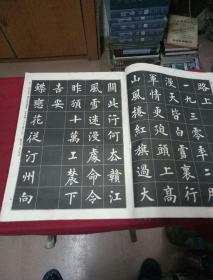 路上
一九三零年二月
漫天皆白雪裏行
軍情更迫頭上高
山風捲紅旗過大
關此行何去贛江
風雪迷漫處命令
昨頒十萬工農下
吉安
蝶戀花從汀州向